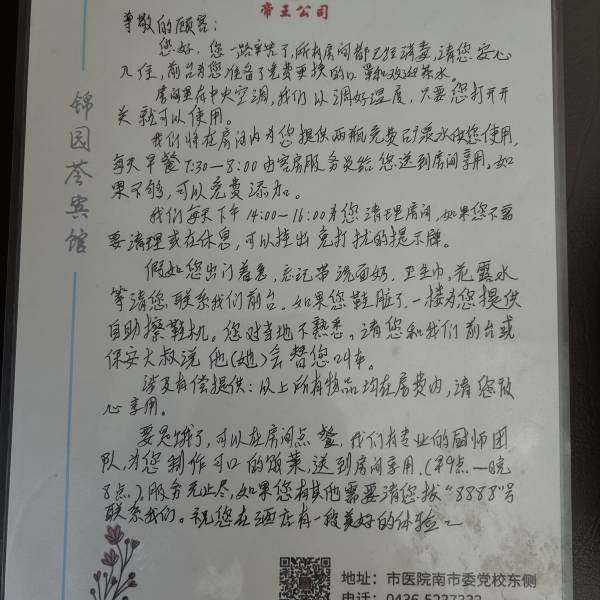 帝王公司
尊敬的顾客:
您好,您一路辛苦了,所有房间都已经消毒,请您安心
入住,前台为您准备了免费更换的口罩和欢迎茶水。
房间里有中央空调,我们以调好温度,只要您打开开
关就可以使用。
我们将在房间内为您提供两瓶免费矿泉水供您使用,
每天早餐7:30-8:00由客房服务员给您送到房间享用。如
果不够,可以免费添加。
我们每天下午14:00-16:00为您清理房间,如果您不需
要清理或在休息,可以挂出免打扰的提示牌。
假如您出门着急,忘记带洗面奶,卫生巾,花露水
等请您联系我们前台。如果您鞋脏了,一楼为您提供
自助擦鞋机。您对当地不熟悉,请您和我们前台或
保安大叔说他(她)会替您叫车。
涉及有偿提供:以上所有物品均在房费内,请您放
心享用。
要是饿了,可以在房间点餐,我们有专业的厨师团
队,为您制作可口的饭菜,送到房间享用.(早9点—晚
8点).服务无止尽,如果您有其他需要请您拨"8888"号
联系我们。祝您在酒店有一段美好的体验~
锦园荟宾馆
地址:市医院南市委党校东侧
电话:0436-5237333